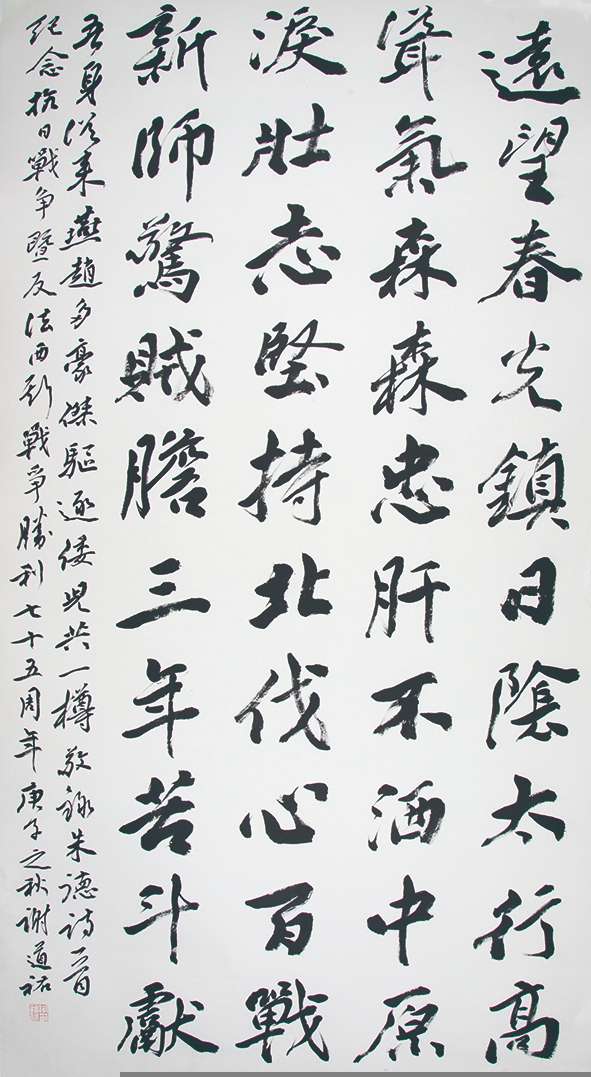 遠望春光鎮日陰太行高
聳氣森森忠肝不洒中原
淚壯志堅持北伐心百戰
新師驚賊膽三年苦斗獻
吾身從来燕趙多豪傑驅逐倭児共一樽敬録朱德詩一首
紀念抗日戰争暨反法西斯戰爭勝利七十五周年庚子之秋謝道祐